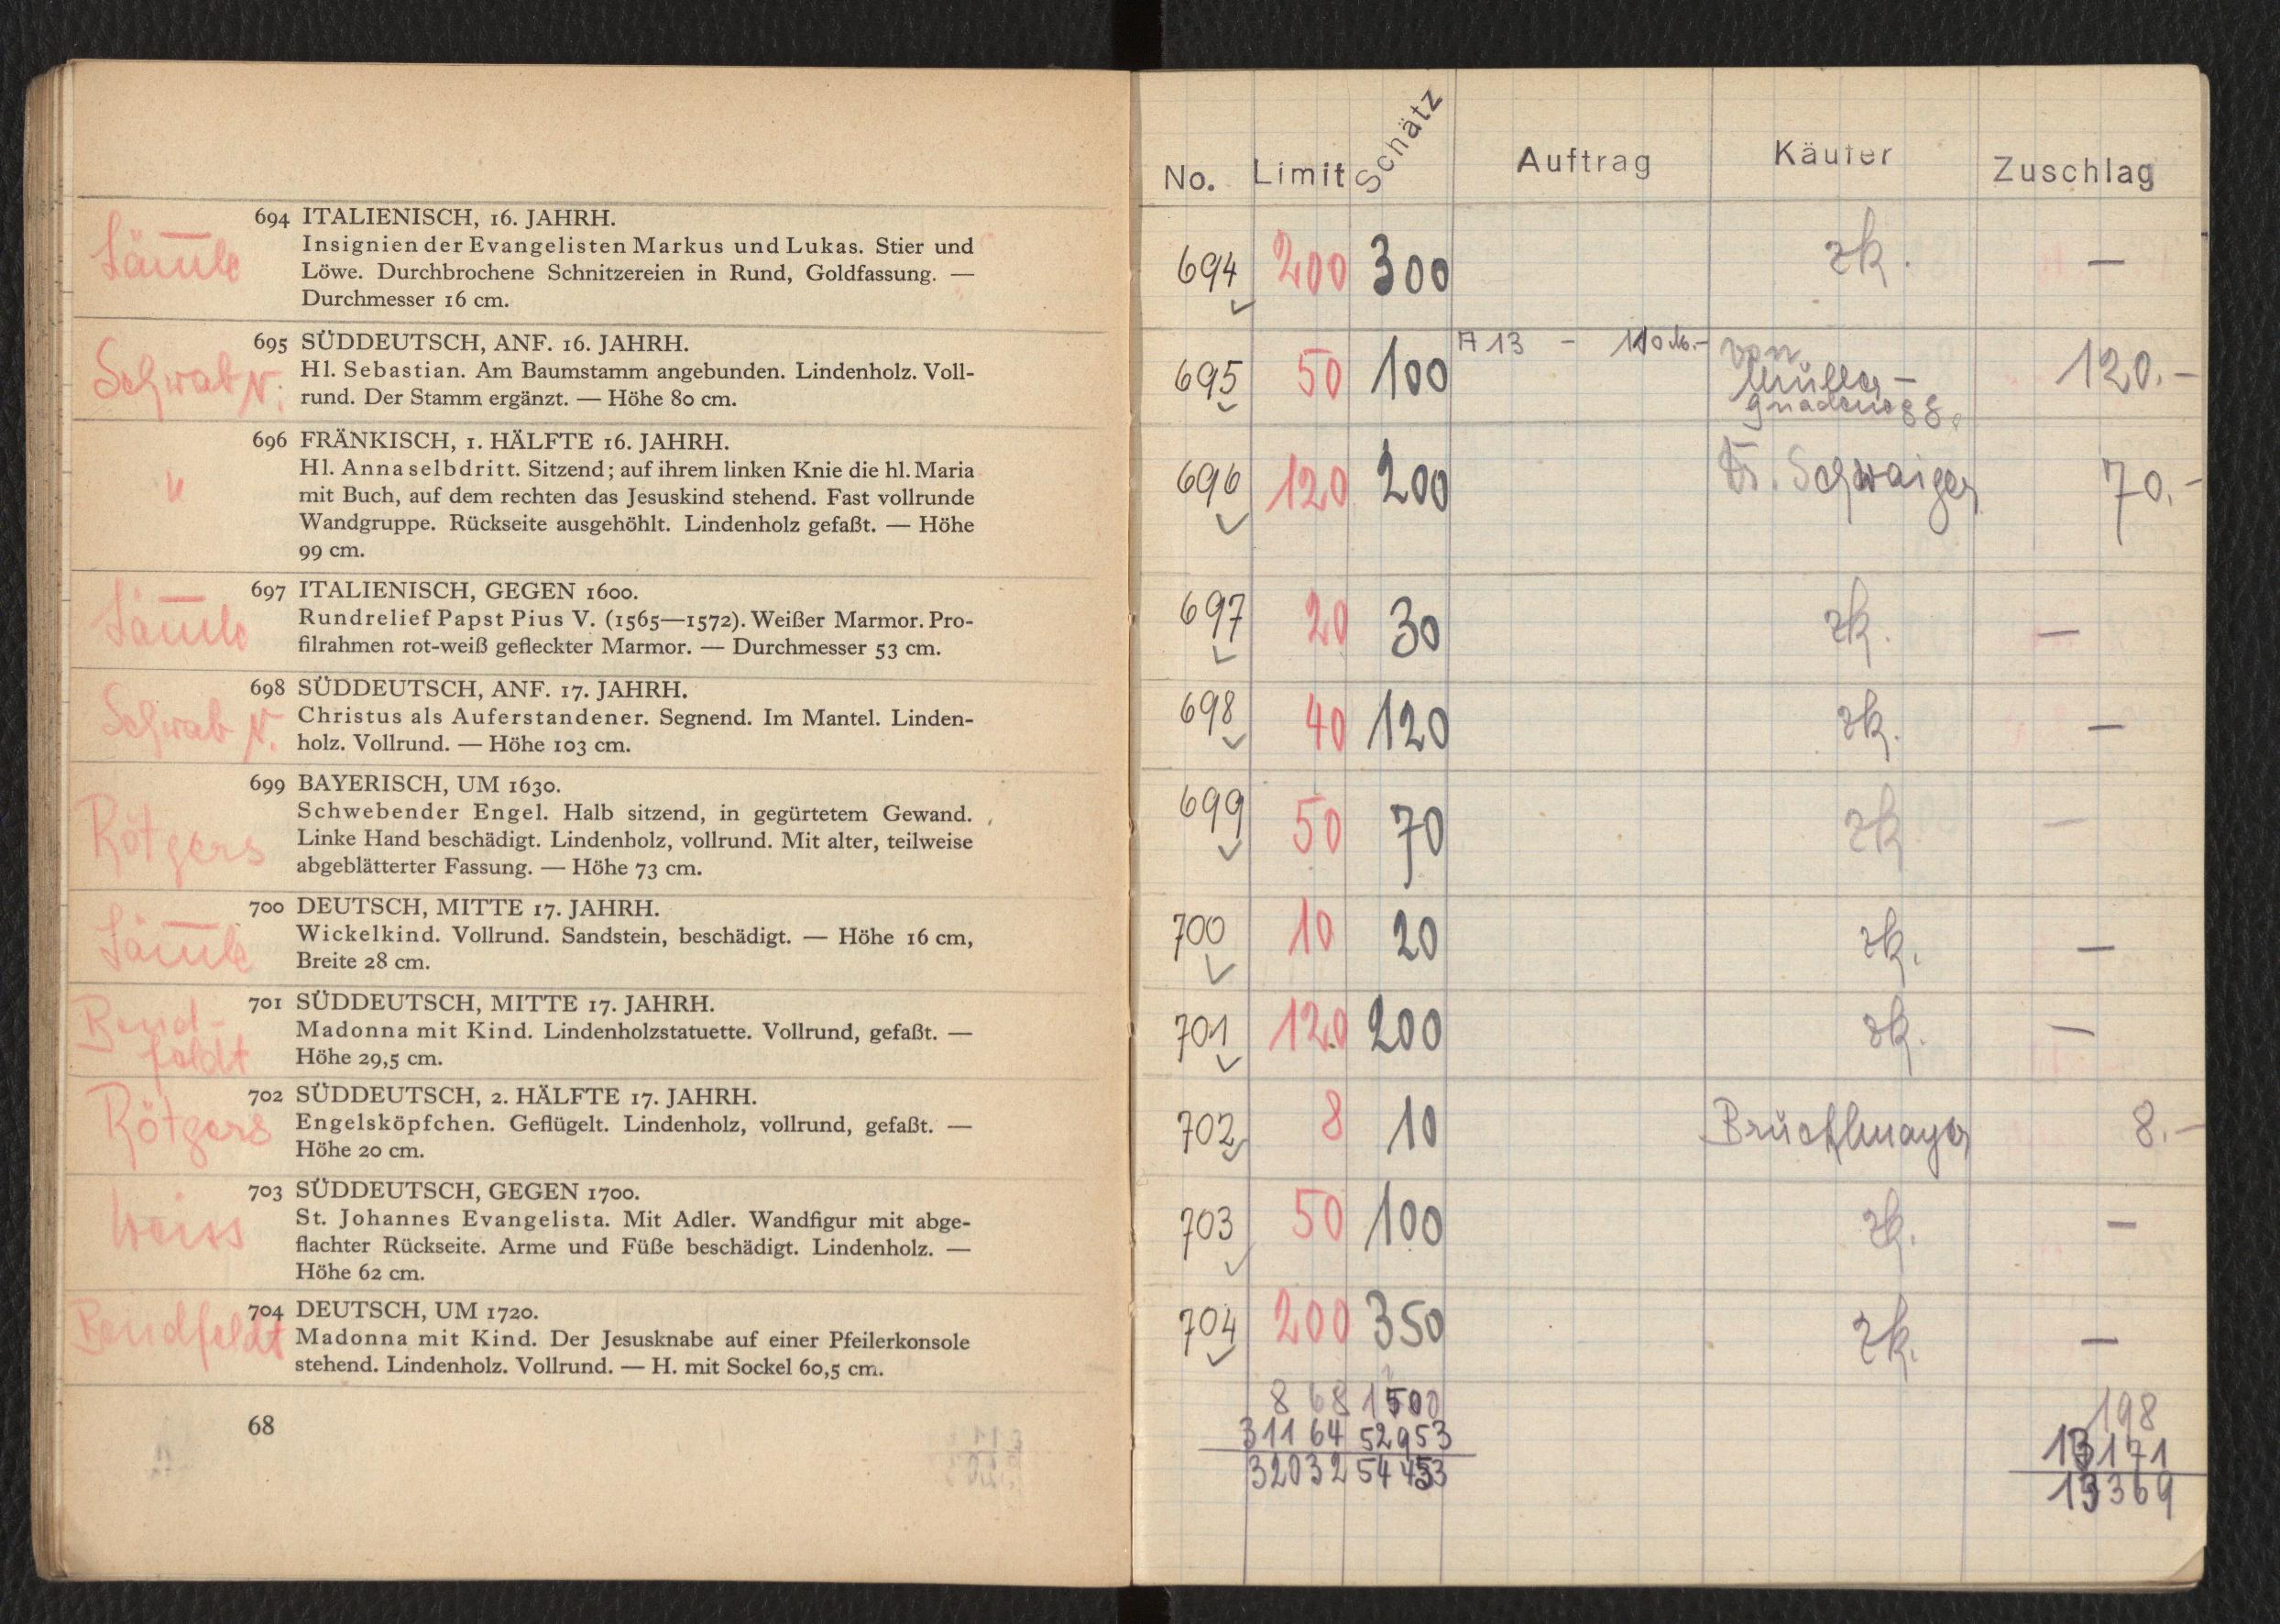 694 ITALIENISCH, 16. JAHRH.
Insignien der Evangelisten Markus und Lukas. Stier und
Löwe. Durchbrochene Schnitzereien in Rund, Goldfassung. —
Durchmesser 16 cm.
Schwab N.
695 SÜDDEUTSCH, ANF. 16. JAHRH.
Hl. Sebastian. Am Baumstamm angebunden. Lindenholz. Voll-
rund. Der Stamm ergänzt. — Höhe 80 cm.
"
696 FRÄNKISCH, 1. HÄLFTE 16. JAHRH.
Hl. Anna selbdritt. Sitzend; auf ihrem linken Knie die hl. Maria
mit Buch, auf dem rechten das Jesuskind stehend. Fast vollrunde
Wandgruppe. Rückseite ausgehöhlt. Lindenholz gefaßt. — Höhe
99 cm.
697 ITALIENISCH, GEGEN 1600.
Rundrelief Papst Pius V. (1565—1572). Weißer Marmor. Pro-
filrahmen rot-weiß gefleckter Marmor. — Durchmesser 53 cm.
Schwab N.
698 SÜDDEUTSCH, ANF. 17. JAHRH.
Christus als Auferstandener. Segnend. Im Mantel. Linden-
holz. Vollrund. — Höhe 103 cm.
Rötgers
699 BAYERISCH, UM 1630.
Schwebender Engel. Halb sitzend, in gegürtetem Gewand.
Linke Hand beschädigt. Lindenholz, vollrund. Mit alter, teilweise
abgeblätterter Fassung. — Höhe 73 cm.
700 DEUTSCH, MITTE 17. JAHRH.
Wickelkind. Vollrund. Sandstein, beschädigt. — Höhe 16 cm,
Breite 28 cm.
Bend-
feldt
701 SÜDDEUTSCH, MITTE 17. JAHRH.
Madonna mit Kind. Lindenholzstatuette. Vollrund, gefaßt. —
Höhe 29,5 cm.
Rötgers
702 SÜDDEUTSCH, 2. HÄLFTE 17. JAHRH.
Engelsköpfchen. Geflügelt. Lindenholz, vollrund, gefaßt. —
Höhe 20 cm.
Weiss
703 SÜDDEUTSCH, GEGEN 1700.
St. Johannes Evangelista. Mit Adler. Wandfigur mit abge-
flachter Rückseite. Arme und Füße beschädigt. Lindenholz. —
Höhe 62 cm.
Bendfeldt
704 DEUTSCH, UM 1720.
Madonna mit Kind. Der Jesusknabe auf einer Pfeilerkonsole
stehend. Lindenholz. Vollrund. — H. mit Sockel 60,5 cm.
68
No. Limit Schätz Auftrag Käufer Zuschlag
694 200 300 zk. —
695 50 100 A 13 - 110 M.- von Müller-
gnadenegg. 120.-
696 120 200 Dr. Schwaiger 70.-
697 20 30 zk. —
698 40 120 zk. —
699 50 70 zk. —
700 10 20 zk. —
701 120 200 zk. —
702 8 10 8.-
703 50 100 zk. —
704 200 350 zk. —
868 1500 198
31164 52953 13171
32032 54453 13369